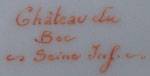 Château du
Bec
Seine Inf.